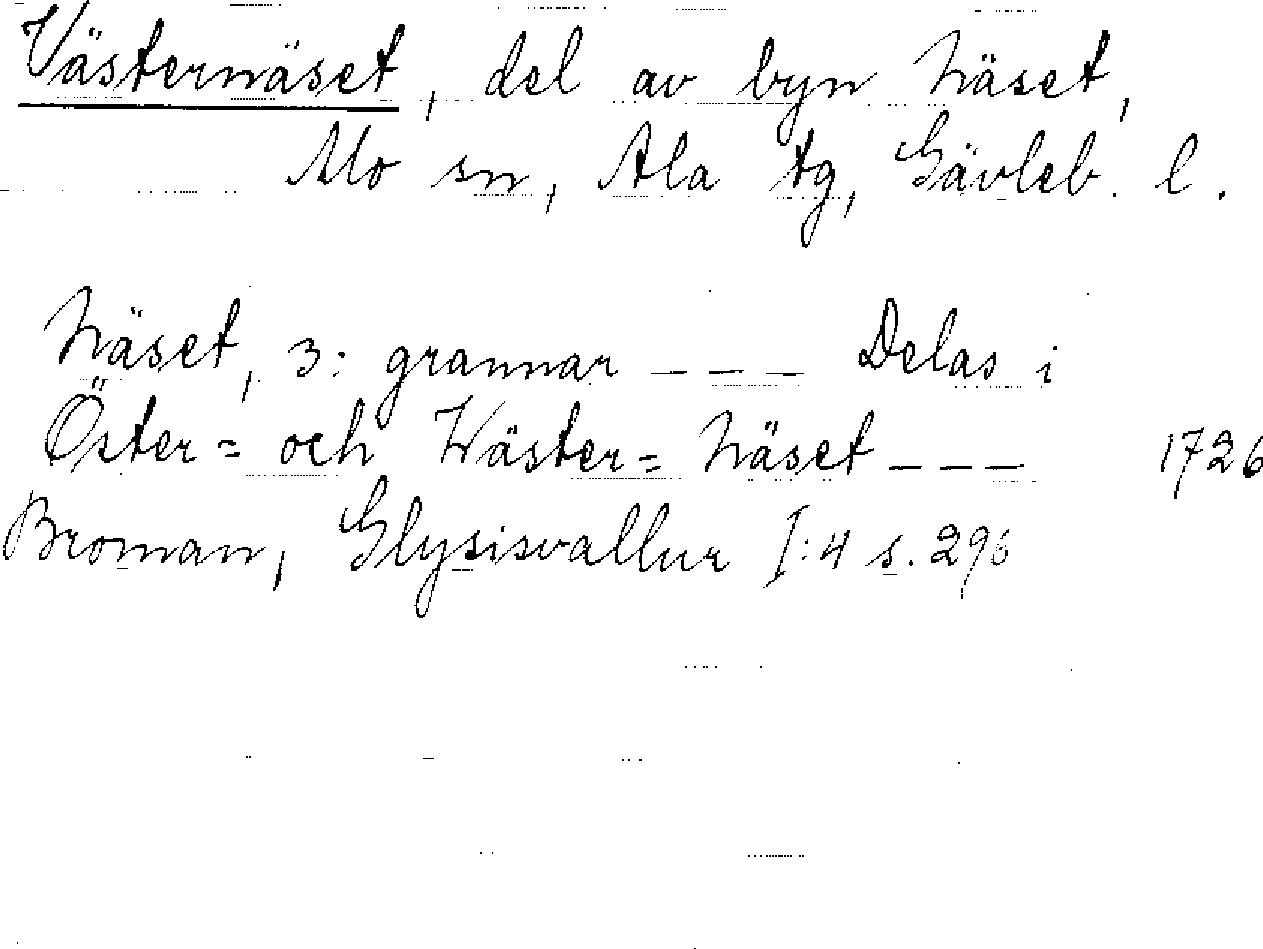 Västernäset, del av byn Näset,
Mo sn, Ala tg, Gävleb. l.
Näset, 3: grannar – – – Delas i
Öster= och Wäster= Näset – – – 1726
Broman, Glysisvallur I:4 s. 296